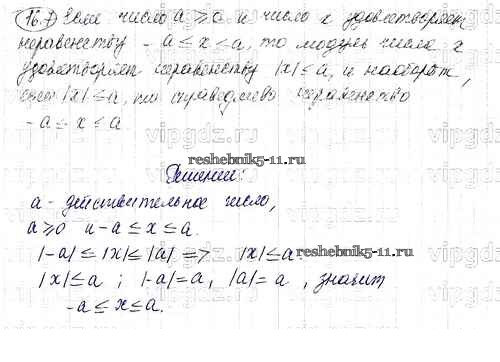 16.7) Если число a ⩾ 0 и число x удовлетворяет
неравенству -a ≤ x ≤ a, то модуль числа x
удовлетворяет неравенству |x| ≤ a, и наоборот,
если |x| ≤ a, то справедливо неравенство
-a ≤ x ≤ a
reshebnik5-11.ru
Решение:
a - действительное число,
a ⩾ 0 и -a ≤ x ≤ a.
|-a| ≤ |x| ≤ |a| => |x| ≤ a
reshebnik5-11.ru
|x| ≤ a ; |-a| = a, |a| = a , значит
-a ≤ x ≤ a.